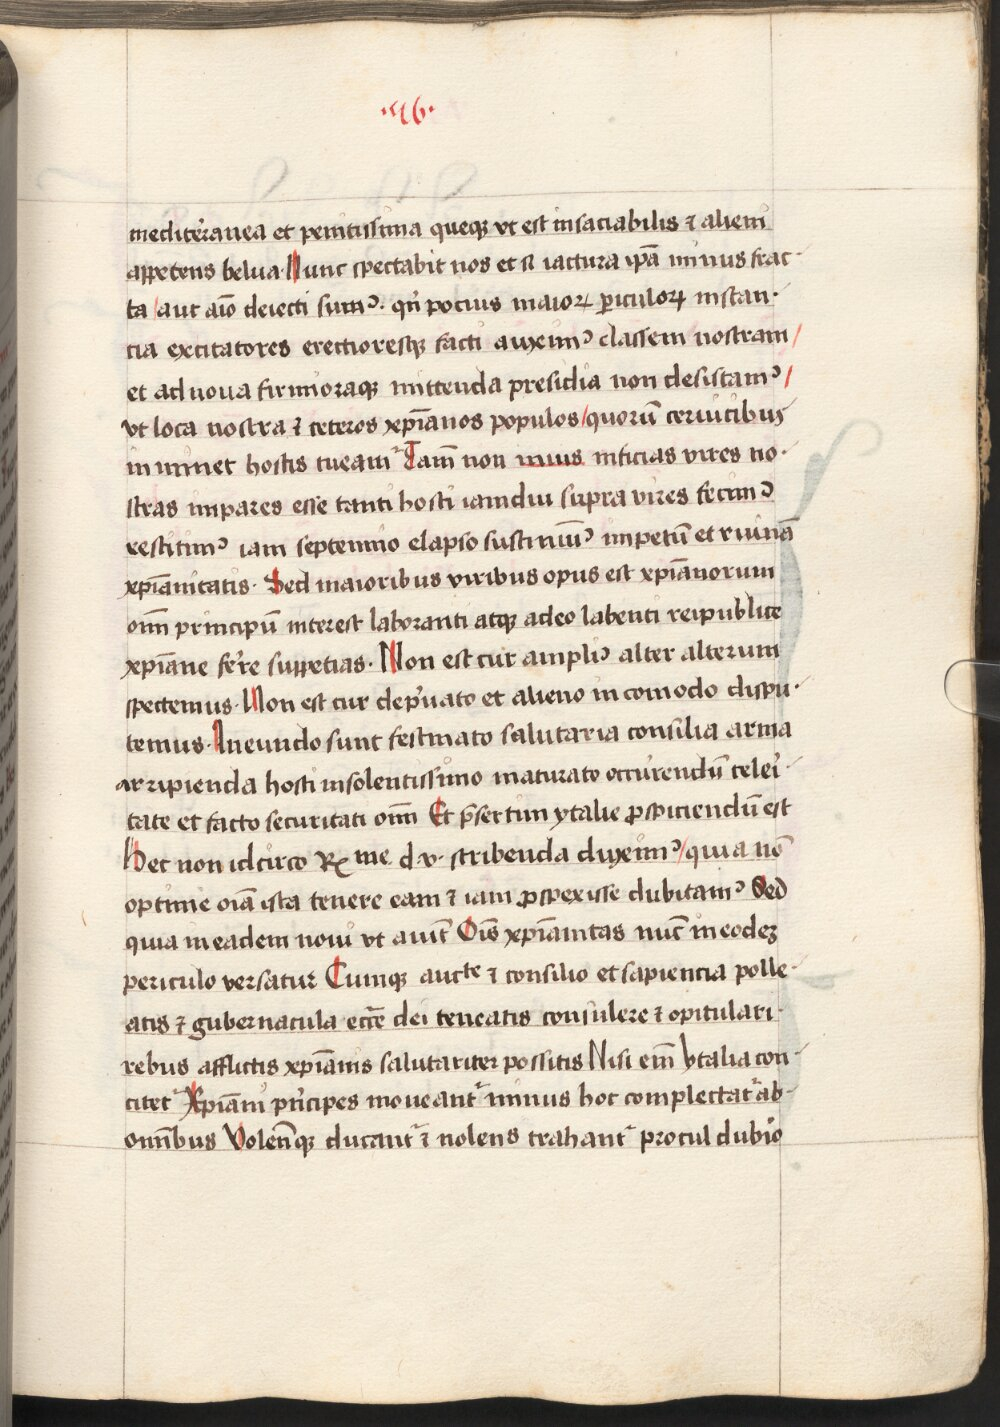 ·46·
mediterranea et penitissima queq₃ vt est insaciabilis ⁊ alieni
appetens belua· Nunc spectabit nos et si iactura ip̄a minus frac-
ta / aut aīo deiecti sumꝰ · qn̄ pocius maioꝝ ꝑiculoꝝ instan-
cia excitatores erectioresq₃ facti auxeimꝰ classem nostram /
et ad noua firmioraq₃ mittenda presidia non desistamꝰ /
vt loca nostra ⁊ ceteros xp̄ianos populos / quorū ceruicibus
inminet hostis tueamr̄ Tam̄ non inius inficias vires no-
stras impares esse tanti hosti iamdiu supra vires fecimꝰ
restitimꝰ iam septennio elapso sustinuimꝰ impetū et ruinā
xp̄ianitatis· Sed maioribus viribus opus est xp̄ianorum
om̄ principū interest laboranti atq₃ adeo labenti reipublice
xp̄iane ferre suppetias· Non est cur ampliꝰ alter alterum
spectemus· Non est cur de pͥuato et alieno incomodo dispu-
temus· Ineundo sunt festinato salutaria consilia arma
arripienda hosti insolentissimo maturato occurrendū celeri-
tate et facto securitati om̄ Et p̄sertim ytalie ꝓspiciendū est
Hec non idcirco R me d· v· scribenda duximꝰ / quia nō
optime oīa ista tenere eam ⁊ iam ꝓspexisse dubitamꝰ Sed
quia in eadem noui vt aiunt Oīs xp̄ianitas nūc in eodeꝫ
periculo versatur Cumq₃ aucte ⁊ consilio et sapiencia polle-
atis ⁊ gubernacula eccē dei teneatis consulere ⁊ opitulari
rebus afflictis xp̄ianis salutariter possitis Nisi em̄ ytalia con-
citetr̄ Xp̄iani pͥncipes moueantr̄ minus hoc complectatr̄ ab
omībus Volenīq₃ ducantr̄ ⁊ nolens trahantr̄ procul dubio